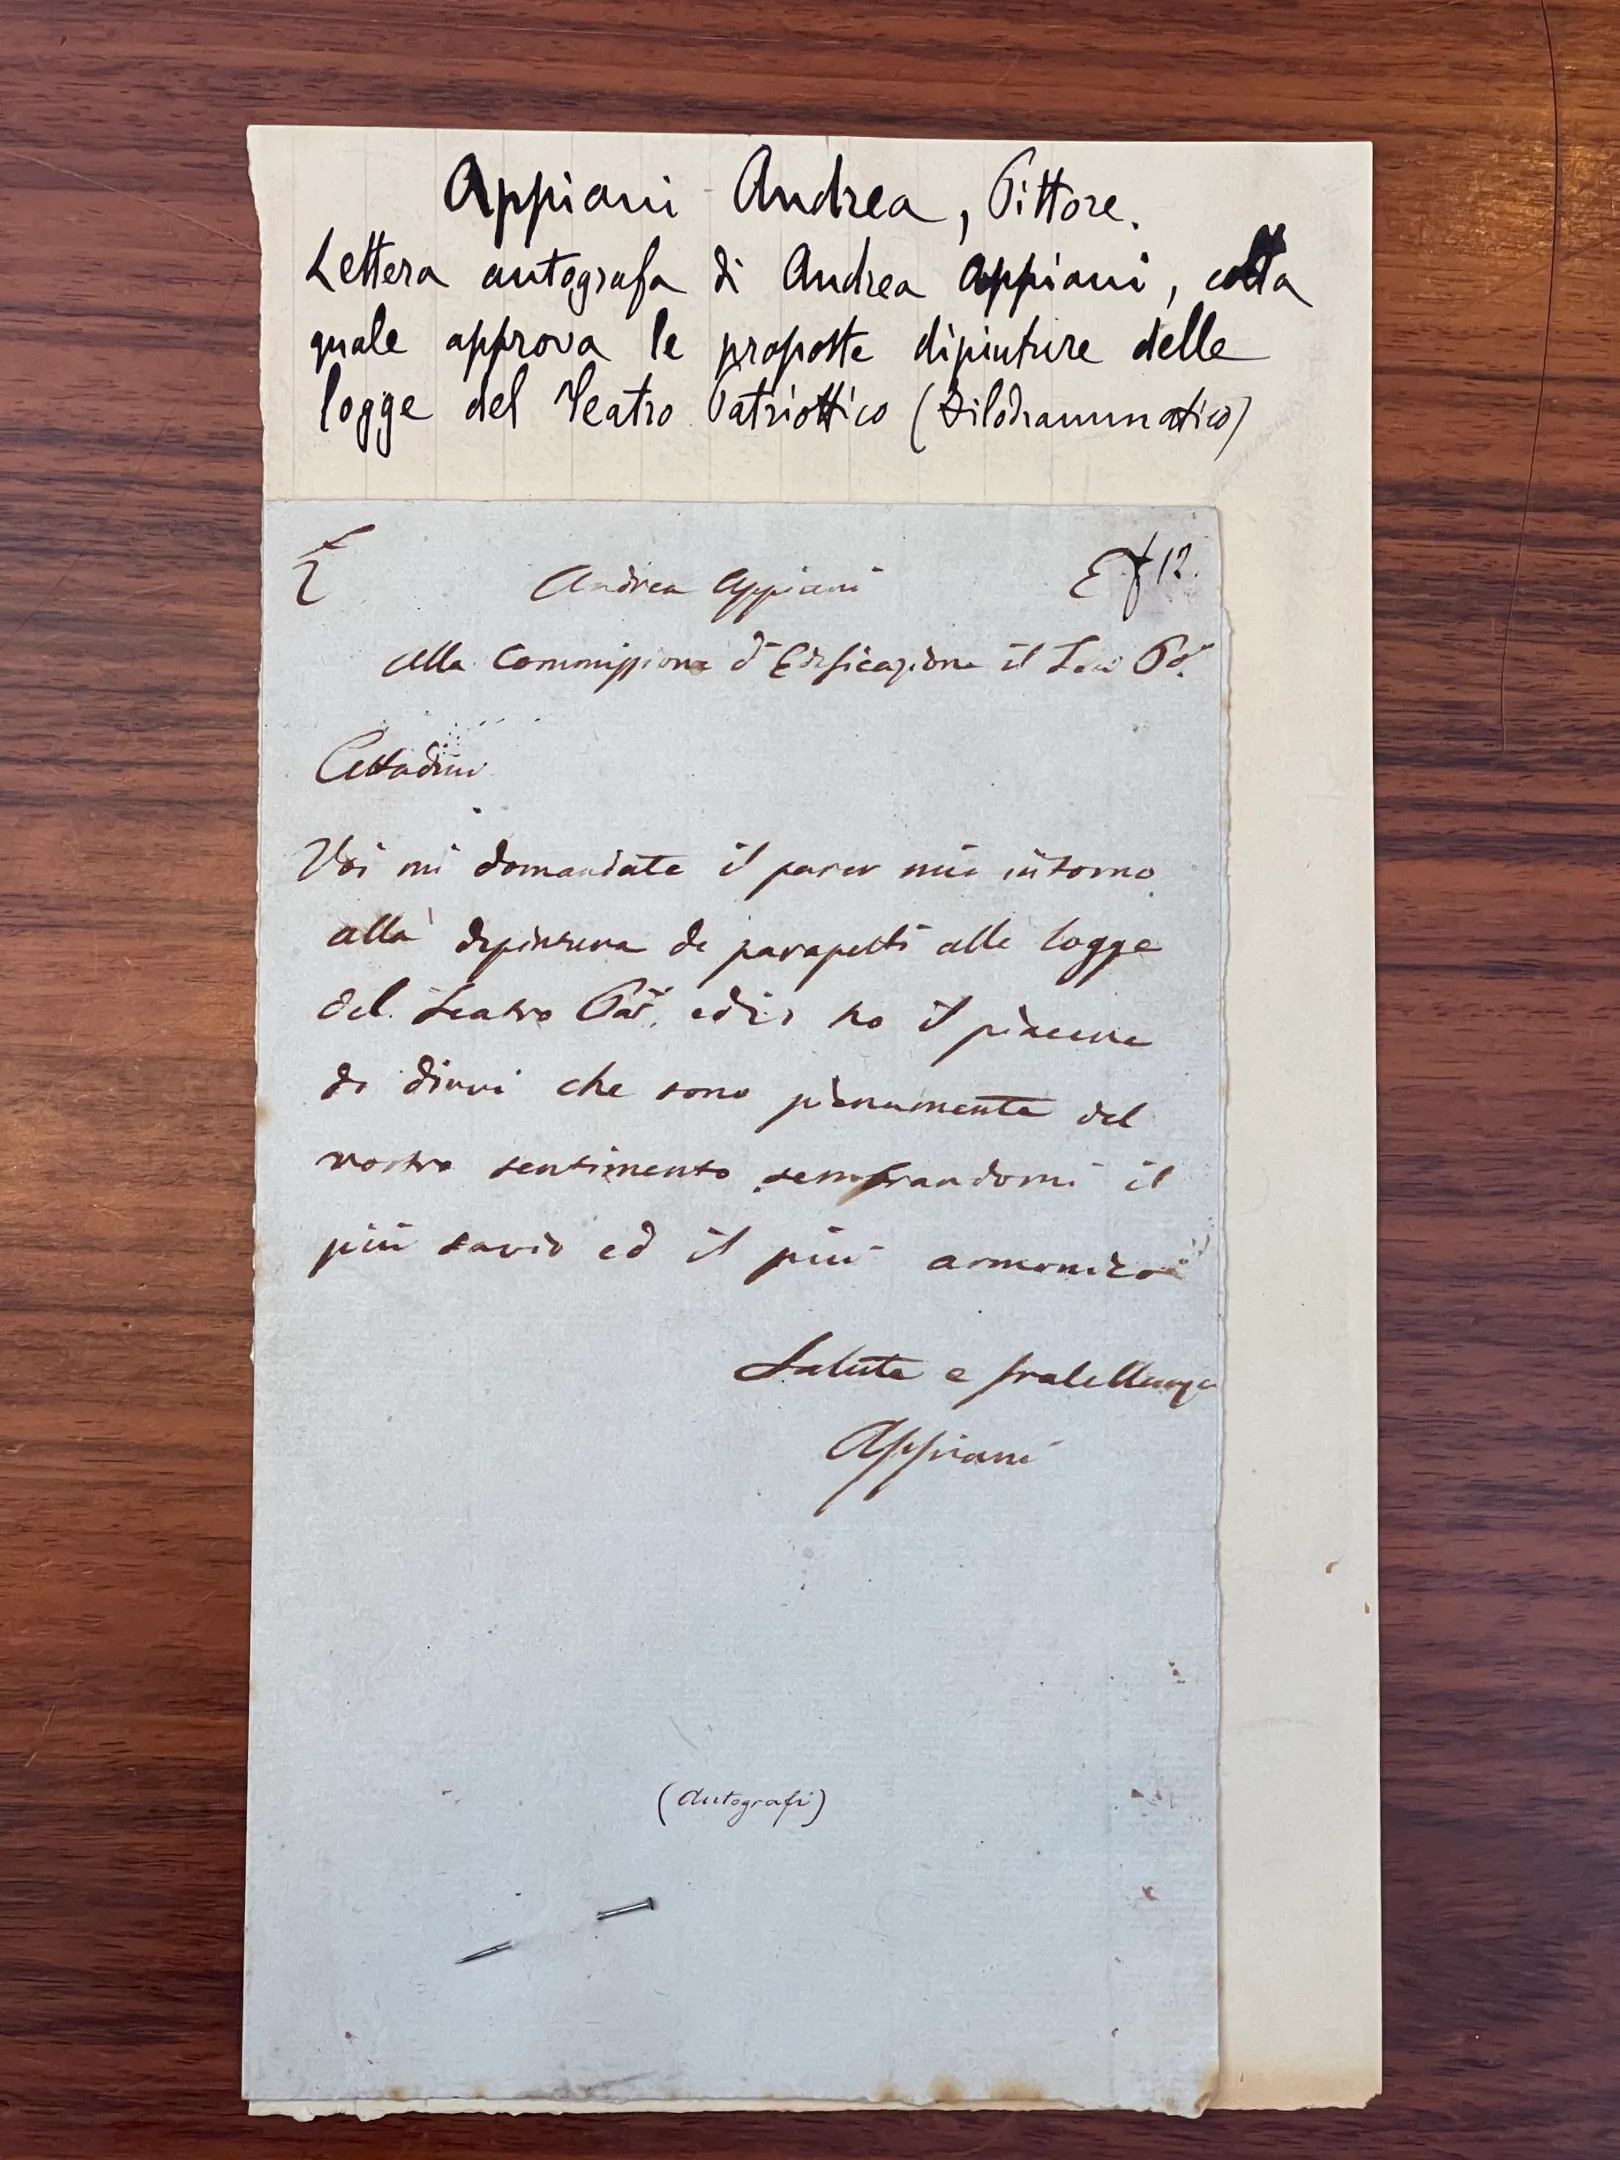 Appiani Andrea, Pittore.
Lettera autografa di Andrea Appiani, colla
quale approva le proposte dipinture delle
logge del Teatro Patriottico (Filodrammatico)
Andrea Appiani
E f 12.
alla Commissione d'Edificazione il
Cittadini
Voi mi domandate il parer mio intorno
alla dipintura de parapetti alle logge
del Teatro Pat. ho il piacere
di dirvi che sono pienamente del
vostro sentimento sembrandomi il
più savio ed il più armonico
Salute e fratellanza
Appiani
(Autografi)